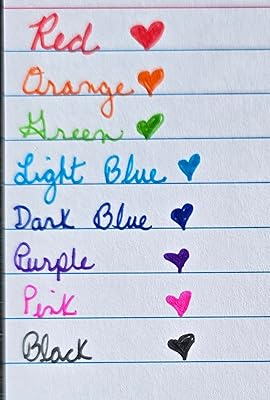 Red
Orange
Green
Light Blue
Dark Blue
Purple
Pink
Black